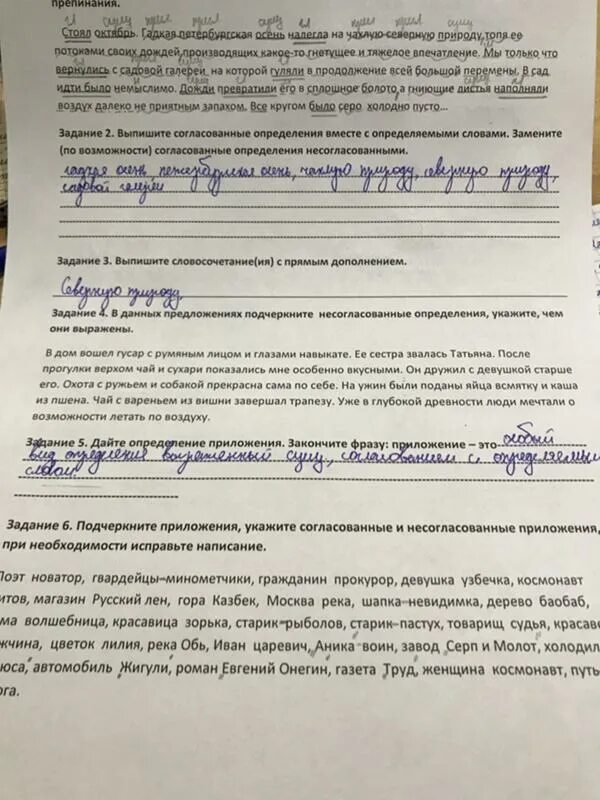 препинания.
сущ прил прил сущ прил прил сущ
Стоял октябрь. Гадкая петербургская осень налегла на чахлую северную природу,топя ее
потоками своих дождей,производящих какое-то гнетущее и тяжелое впечатление. Мы только что
вернулись с садовой галереи, на которой гуляли в продолжение всей большой перемены. В сад
идти было немыслимо. Дожди превратили его в сплошное болото,а гниющие листья наполняли
воздух далеко не приятным запахом. Все кругом было серо холодно пусто...
Задание 2. Выпишите согласованные определения вместе с определяемыми словами. Замените
(по возможности) согласованные определения несогласованными.
гадкая осень, петербургская осень, чахлую природу, северную природу,
садовой галереи
Задание 3. Выпишите словосочетание(ия) с прямым дополнением.
Северную природу
Задание 4. В данных предложениях подчеркните несогласованные определения, укажите, чем
они выражены.
В дом вошел гусар с румяным лицом и глазами навыкате. Ее сестра звалась Татьяна. После
прогулки верхом чай и сухари показались мне особенно вкусными. Он дружил с девушкой старше
его. Охота с ружьем и собакой прекрасна сама по себе. На ужин были поданы яйца всмятку и каша
из пшена. Чай с вареньем из вишни завершал трапезу. Уже в глубокой древности люди мечтали о
возможности летать по воздуху.
Задание 5. Дайте определение приложения. Закончите фразу: приложение – это особый
вид определения выраженный сущ, согласованием с определяемым
словом
Задание 6. Подчеркните приложения, укажите согласованные и несогласованные приложения,
при необходимости исправьте написание.
Поэт новатор, гвардейцы-минометчики, гражданин прокурор, девушка узбечка, космонавт
итов, магазин Русский лен, гора Казбек, Москва река, шапка-невидимка, дерево баобаб,
ма волшебница, красавица зорька, старик-рыболов, старик-пастух, товарищ судья, красаве
жчина, цветок лилия, река Обь, Иван царевич, Аника-воин, завод "Серп и Молот", холодил
юса", автомобиль "Жигули", роман "Евгений Онегин", газета "Труд", женщина космонавт, путь
ога.